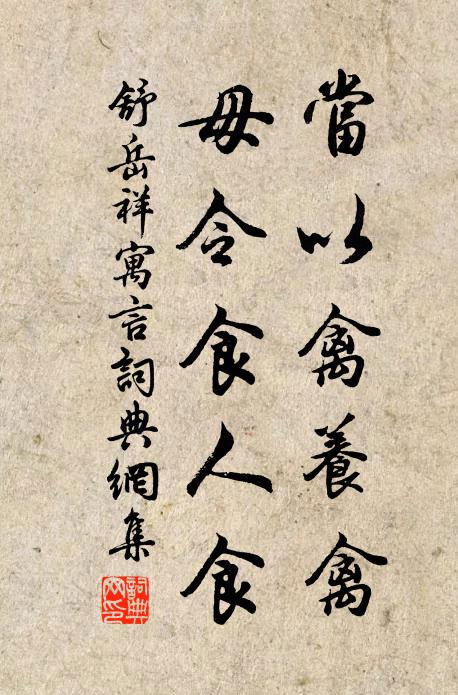 當以禽養禽
毋令食人食
舒岳祥寓言詞典網集
詞典網印